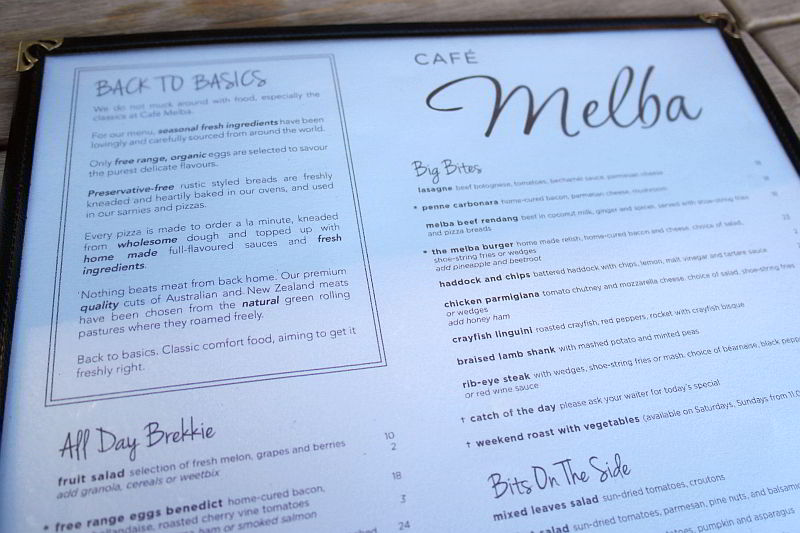 BACK TO BASICS
We do not muck around with food, especially the
classics at Café Melba.
For our menu, seasonal fresh ingredients have been
lovingly and carefully sourced from around the world.
Only free range, organic eggs are selected to savour
the purest delicate flavours.
Preservative-free rustic styled breads are freshly
kneaded and heartily baked in our ovens, and used
in our sarnies and pizzas.
Every pizza is made to order a la minute, kneaded
from wholesome dough and topped up with
home made full-flavoured sauces and fresh
ingredients.
'Nothing beats meat from back home. Our premium
quality cuts of Australian and New Zealand meats
have been chosen from the natural green rolling
pastures where they roamed freely.
Back to basics. Classic comfort food, aiming to get it
freshly right.
All Day Brekkie
fruit salad selection of fresh melon, grapes and berries 10
add granola, cereals or weetbix 2
* free range eggs benedict home-cured bacon, 18
hollandaise, roasted cherry vine tomatoes
ham or smoked salmon 3
24
CAFÉ
Melba
Big Bites
lasagne beef bolognese, tomatoes, bechamel sauce, parmesan cheese
* penne carbonara home-cured bacon, parmesan cheese, mushroom
melba beef rendang beef in coconut milk, ginger and spices, served with shoe-string fries
and pizza breads
* the melba burger home made relish, home-cured bacon and cheese, choice of salad, 23
shoe-string fries or wedges
add pineapple and beetroot
haddock and chips battered haddock with chips, lemon, malt vinegar and tartare sauce
chicken parmigiana tomato chutney and mozzarella cheese, choice of salad, shoe-string fries
or wedges
add honey ham
crayfish linguini roasted crayfish, red peppers, rocket with crayfish bisque
braised lamb shank with mashed potato and minted peas
rib-eye steak with wedges, shoe-string fries or mash, choice of béarnaise, black pepp
or red wine sauce
† catch of the day please ask your waiter for today's special
† weekend roast with vegetables (available on Saturdays, Sundays from 11.0
Bits On The Side
mixed leaves salad sun-dried tomatoes, croutons
salad sun-dried tomatoes, parmesan, pine nuts, and balsamic
tomatoes, pumpkin and asparagus